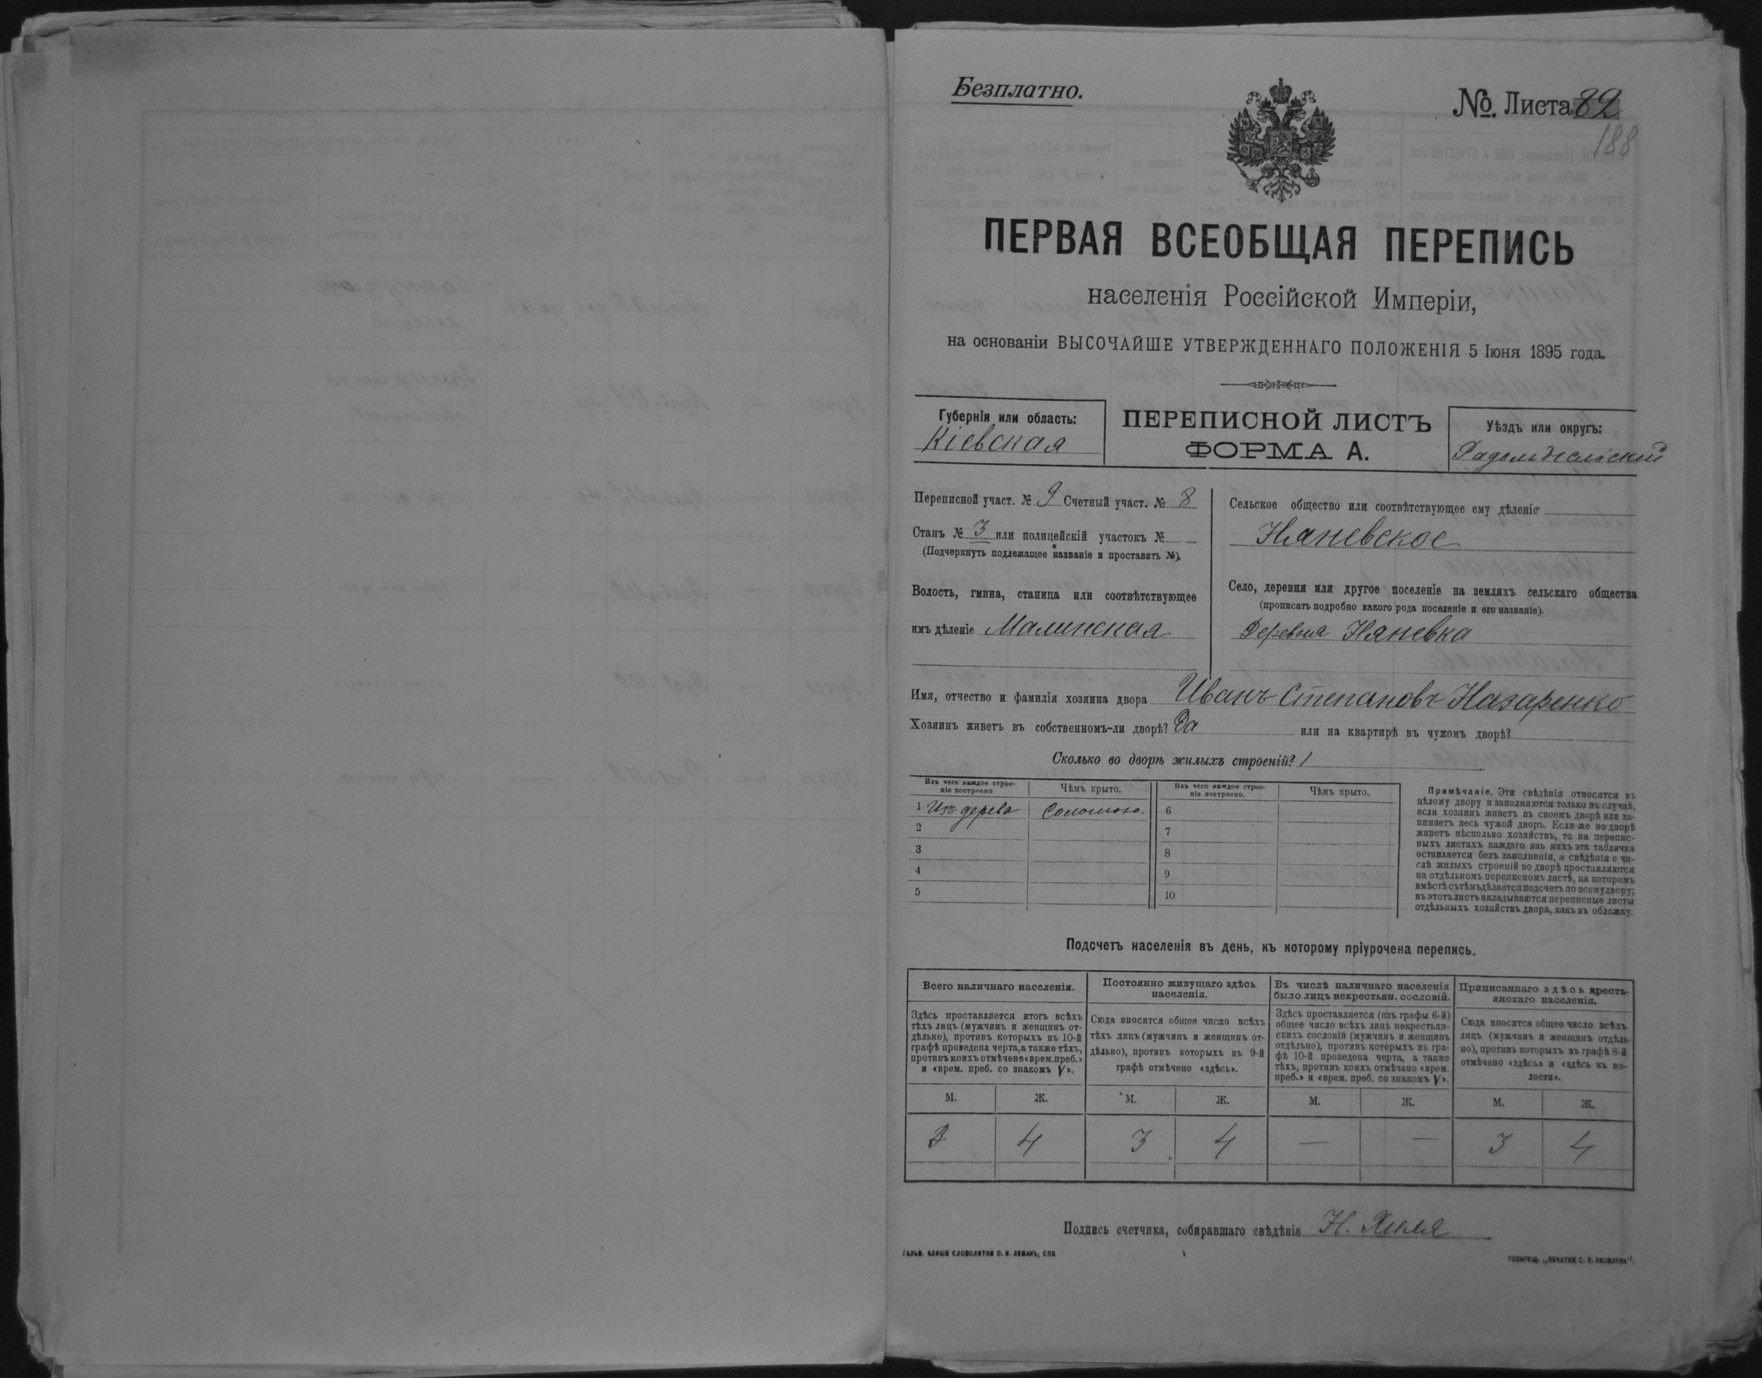 Безплатно.
№. Листа 82
188
ПЕРВАЯ ВСЕОБЩАЯ ПЕРЕПИСЬ
населенія Россійской Имперіи,
на основаніи ВЫСОЧАЙШЕ УТВЕРЖДЕННАГО ПОЛОЖЕНІЯ 5 Іюня 1895 года.
Губернія или область:
Кіевская
ПЕРЕПИСНОЙ ЛИСТЪ
ФОРМА А.
Уѣздъ или округъ:
Радомысльскій
Переписной участ. № 9 Счетный участ. № 8
Станъ № 3 или полицейскій участокъ №
(Подчеркнуть подлежащее названіе и проставить №).
Волость, гмина, станица или соотвѣтствующее
имъ дѣленіе Малинская
Сельское общество или соотвѣтствующее ему дѣленіе
Няневское
Село, деревня или другое поселеніе на земляхъ сельскаго общества
(прописать подробно какого рода поселеніе и его названіе).
Деревня Няневка
Имя, отчество и фамилія хозяина двора Иванъ Степановъ Назаренко
Хозяинъ живетъ въ собственномъ-ли дворѣ? Да или на квартирѣ въ чужомъ дворѣ?
Сколько во дворѣ жилыхъ строеній? 1
Изъ чего каждое строе-
ніе построено
Чѣмъ крыто.
Изъ чего каждое строе-
ніе построено.
Чѣмъ крыто.
1 Изъ дерева Соломою. 6
2 7
3 8
4 9
5 10
Примѣчаніе. Эти свѣдѣнія относятся къ
цѣлому двору и заполняются только въ случаѣ,
если хозяинъ живетъ въ своемъ дворѣ или за-
нимаетъ весь чужой дворъ. Если-же во дворѣ
живетъ нѣсколько хозяйствъ, то на перепис-
ныхъ листахъ каждаго изъ нихъ эта табличка
оставляется безъ заполненія, а свѣдѣнія о чи-
слѣ жилыхъ строеній во дворѣ проставляются
на отдѣльномъ переписномъ листѣ, на которомъ
вмѣстѣ съ тѣмъ дѣлается подсчетъ по всему двору;
въ этотъ листъ вкладываются переписные листы
отдѣльныхъ хозяйствъ двора, какъ въ обложку.
Подсчетъ населенія въ день, къ которому пріурочена перепись.
Всего наличнаго населенія.
Постоянно живущаго здѣсь
населенія.
Въ числѣ наличнаго населенія
было лицъ некрестьян. сословій.
Приписаннаго здѣсь кресть-
янскаго населенія.
Здѣсь проставляется итогъ всѣхъ
тѣхъ лицъ (мужчинъ и женщинъ от-
дѣльно), противъ которыхъ въ 10-й
графѣ проведена черта, а также тѣхъ,
противъ коихъ отмѣчено «врем. преб.»
и «врем. преб. со знакомъ V».
Сюда вносится общее число всѣхъ
тѣхъ лицъ (мужчинъ и женщинъ от-
дѣльно), противъ которыхъ въ 9-й
графѣ отмѣчено «здѣсь».
Здѣсь проставляется (изъ графы 6-й)
общее число всѣхъ лицъ некрестьян-
скихъ сословій (мужчинъ и женщинъ
отдѣльно), противъ которыхъ въ гра-
фѣ 10-й проведена черта, а также
тѣхъ, противъ коихъ отмѣчено «врем.
преб.» и «врем. преб. со знакомъ V».
Сюда вносится общее число всѣхъ
лицъ (мужчинъ и женщинъ отдѣль-
но), противъ которыхъ въ графѣ 8-й
отмѣчено «здѣсь» и «здѣсь въ во-
лости».
М. Ж. М. Ж. М. Ж. М. Ж.
3 4 3 4 — — 3 4
Подпись счетчика, собиравшаго свѣдѣнія Н.
ГАЛЬВ. КЛИШЕ СЛОВОЛИТНИ О. И. ЛЕМАНЪ, СПБ
ТОВАРИЩ. „ПЕЧАТНЯ С. П. ЯКОВЛЕВА“.